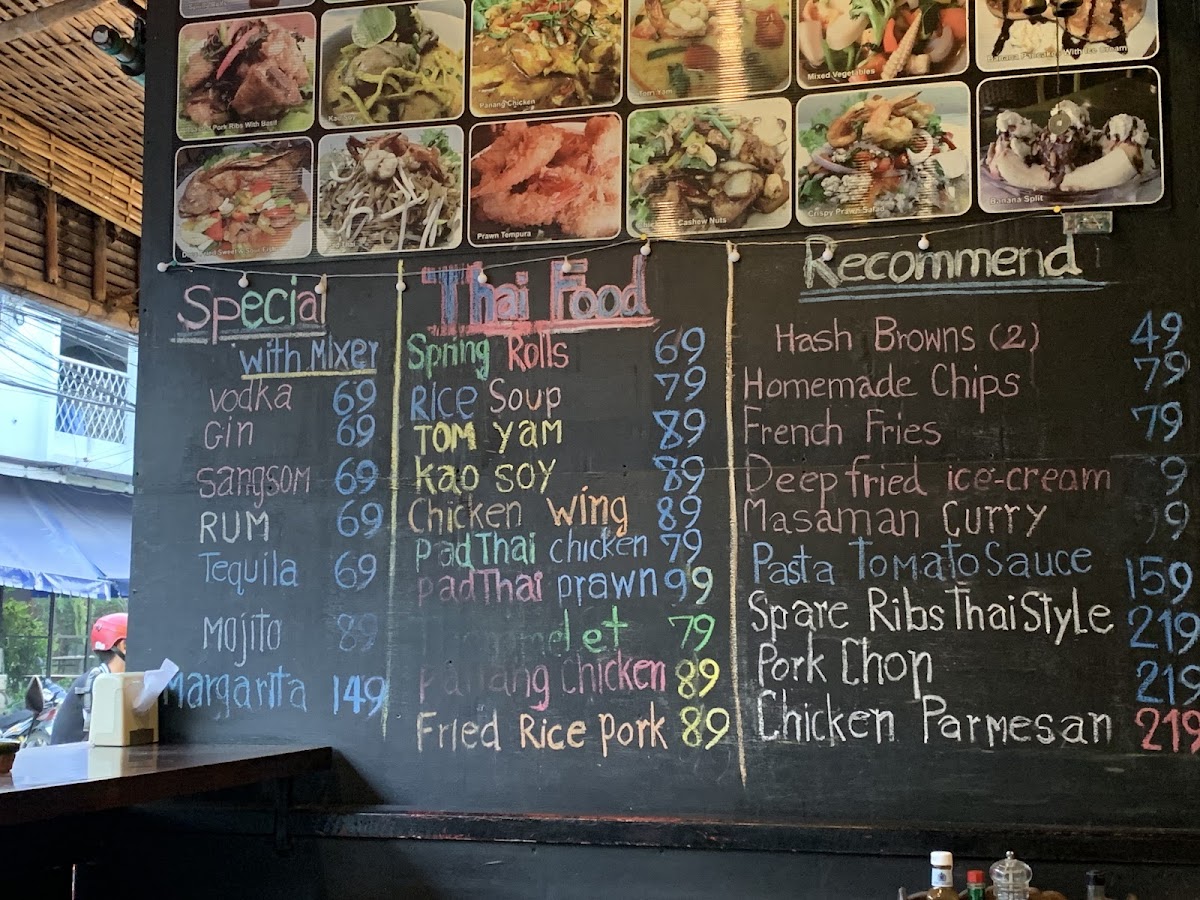 Pork Ribs With Basil
Panang Chicken
Tom Yam
Mixed Vegetables
Banana Pancake With Ice Cream
Prawn Tempura
Cashew Nuts
Crispy Prawn Salad
Banana Split
Special
with Mixer
Vodka 69
Gin 69
Sangsom 69
RUM 69
Tequila 69
Mojito 89
Margarita 149
Thai Food
Spring Rolls 69
Rice Soup 79
Tom Yam 89
Kao Soy 89
Chicken Wing 89
Pad Thai chicken 79
Pad Thai prawn 99
79
Panang Chicken 89
Fried Rice Pork 89
Recommend
Hash Browns (2) 49
Homemade Chips 79
French Fries 79
Deep fried ice-cream 9
Masaman Curry 9
Pasta Tomato Sauce 159
Spare Ribs Thai Style 219
Pork Chop 219
Chicken Parmesan 219